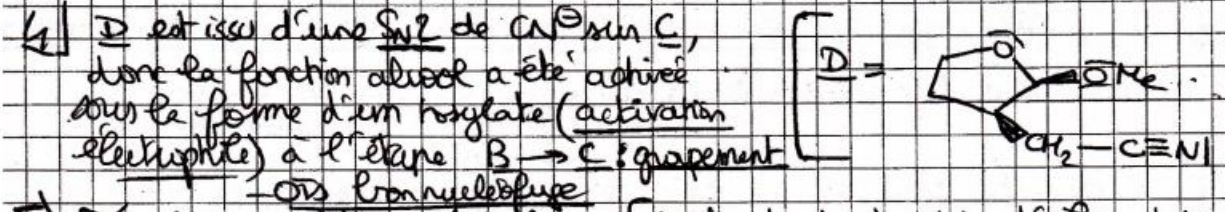 4] D est issu d'une SN2 de CN⊖ sur C,
donc la fonction alcool a été activée
sous la forme d'un tosylate (activation
électrophile) à l'étape B → C : groupement
-OTs bon nucléofuge
D =
O
OMe
CH₂ — C≡N|